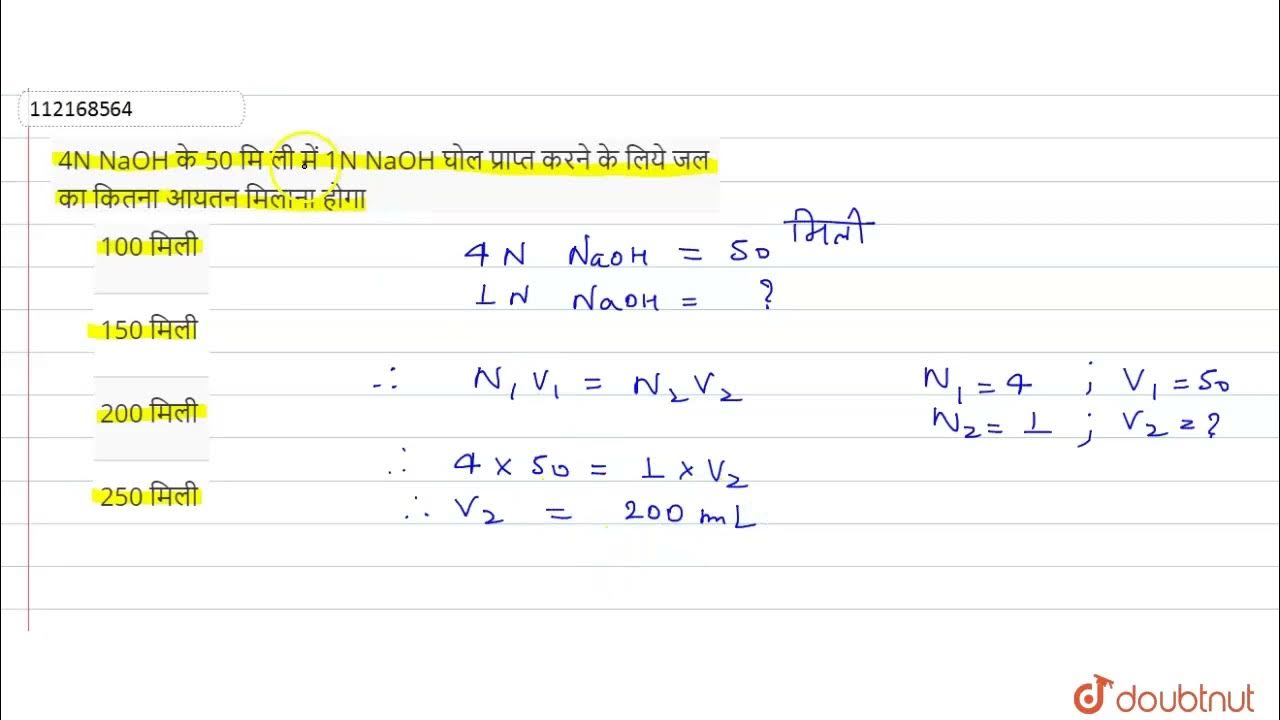 112168564
4N NaOH के 50 मि ली में 1N NaOH घोल प्राप्त करने के लिये जल
का कितना आयतन मिलाना होगा
100 मिली
150 मिली
200 मिली
250 मिली
4 N NaOH = 50 मिली
1 N NaOH = ?
∴ N₁V₁ = N₂V₂
N₁ = 4 ; V₁ = 50
N₂ = 1 ; V₂ = ?
∴ 4 × 50 = 1 × V₂
∴ V₂ = 200 mL
doubtnut